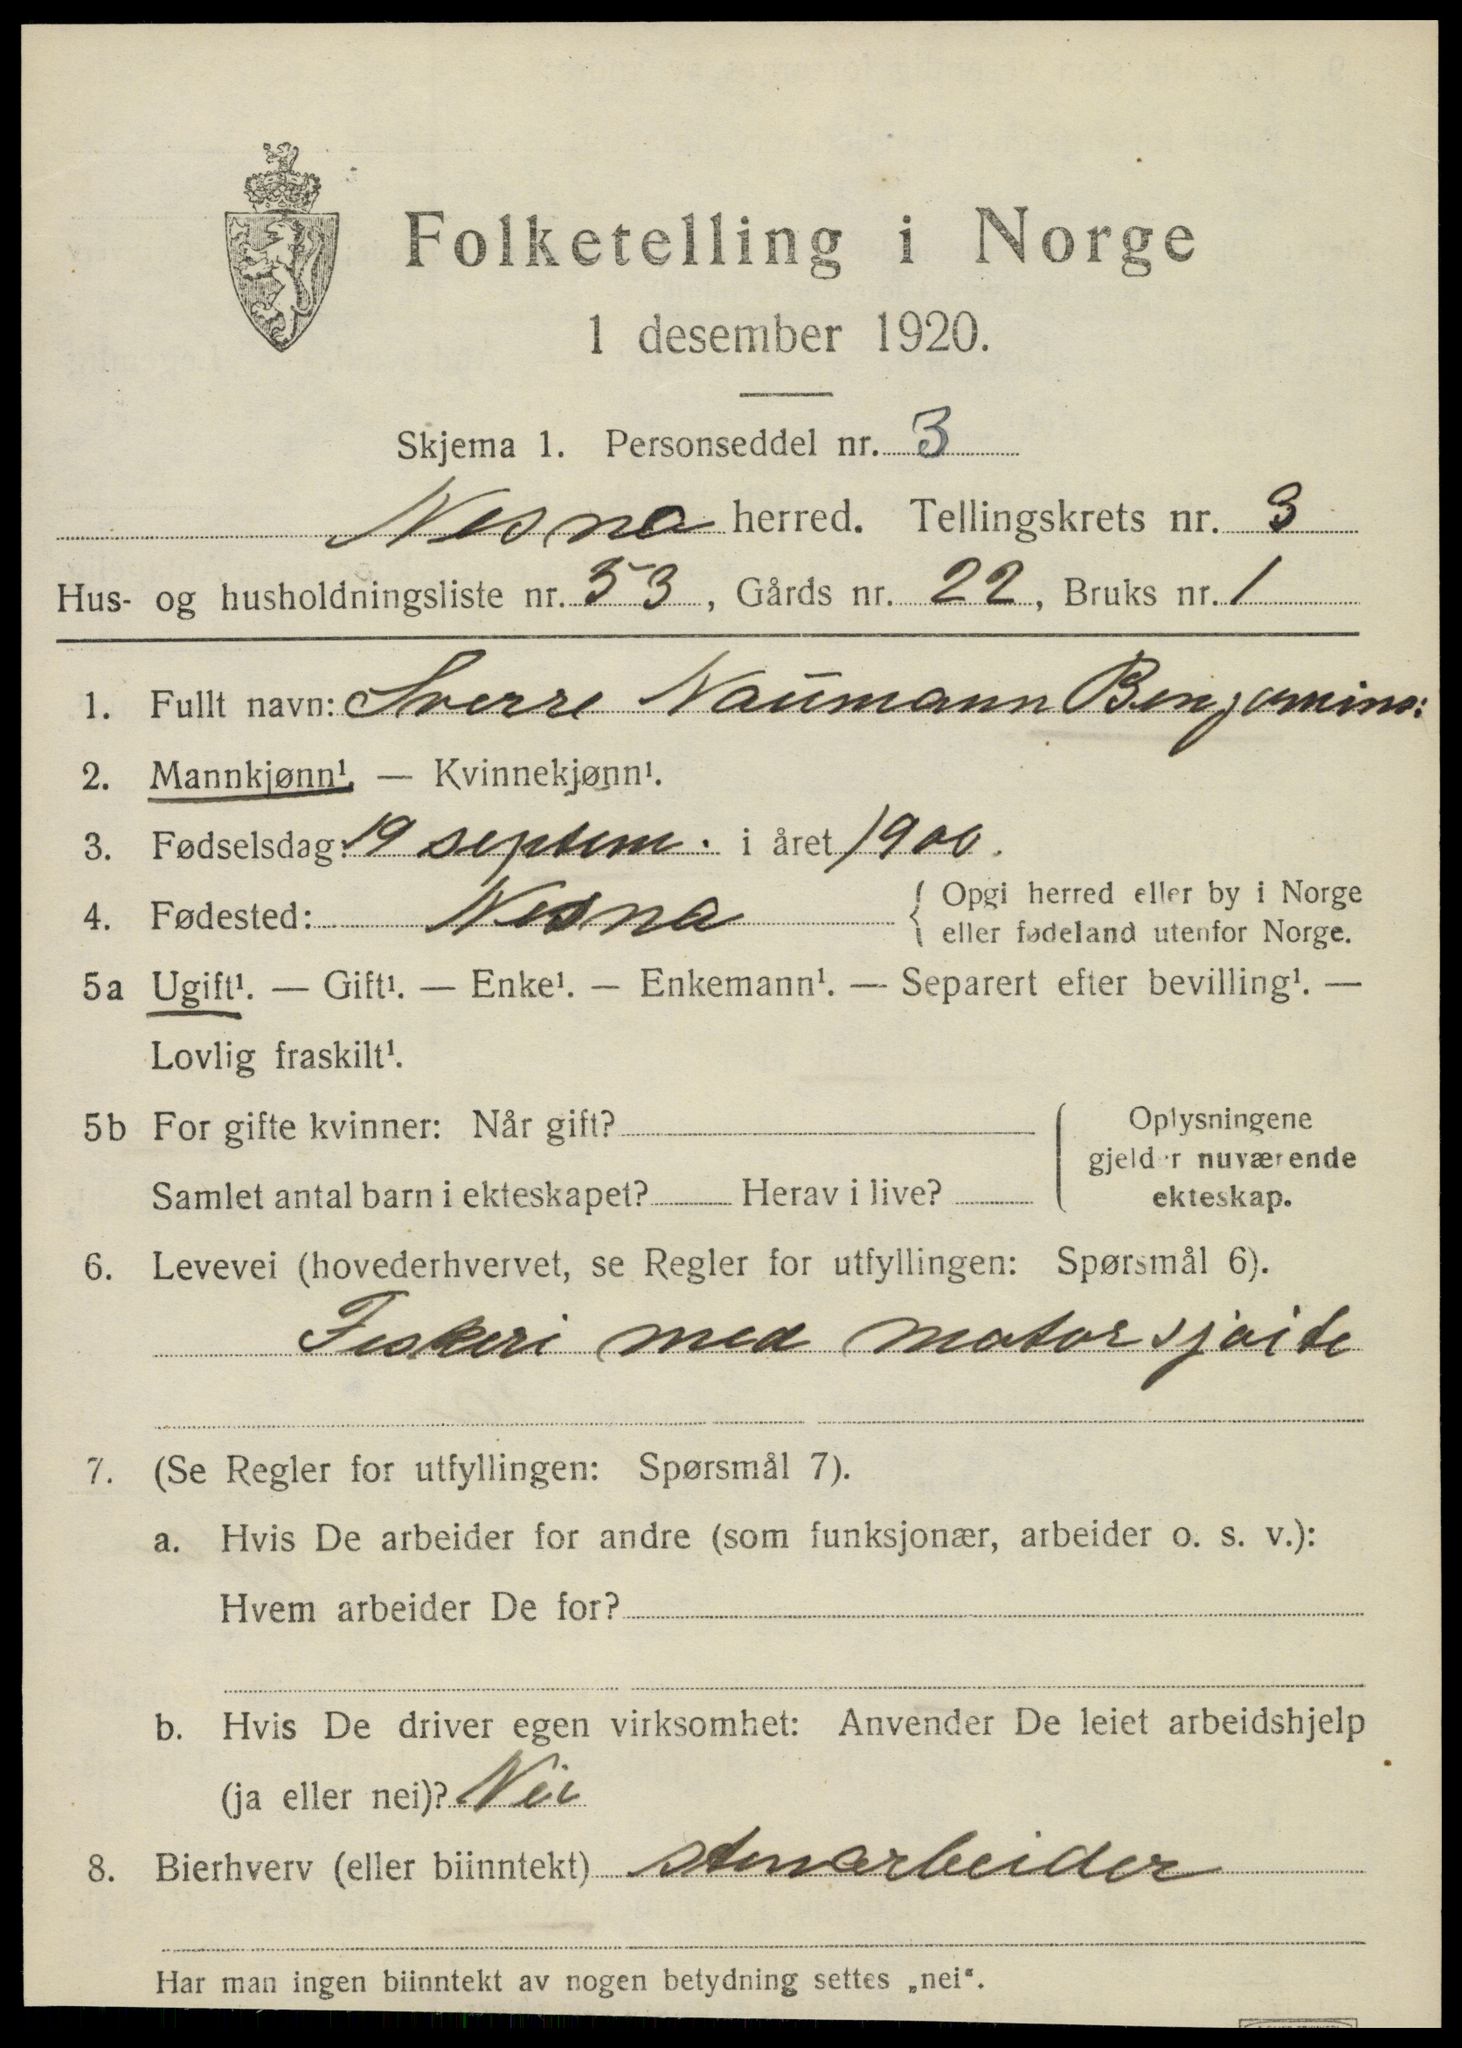 Folketelling i Norge
1 desember 1920.
Skjema 1. Personseddel nr. 3
Nesna herred. Tellingskrets nr. 3
Hus- og husholdningsliste nr. 53, Gårds nr. 22, Bruks nr. 1
1. Fullt navn: Sverre Naumann Benjamins:
2. Mannkjønn¹. — Kvinnekjønn¹.
3. Fødselsdag: 19 septem. i året 1900.
4. Fødested: Nesna { Opgi herred eller by i Norge
eller fødeland utenfor Norge.
5a Ugift¹. — Gift¹. — Enke¹. — Enkemann¹. — Separert efter bevilling¹. —
Lovlig fraskilt¹.
5b For gifte kvinner: Når gift? Oplysningene
gjelder nuværende
Samlet antal barn i ekteskapet? Herav i live? ekteskap.
6. Levevei (hovederhvervet, se Regler for utfyllingen: Spørsmål 6).
Fiskeri med motorsjøite
7. (Se Regler for utfyllingen: Spørsmål 7).
a. Hvis De arbeider for andre (som funksjonær, arbeider o. s. v.):
Hvem arbeider De for?
b. Hvis De driver egen virksomhet: Anvender De leiet arbeidshjelp
(ja eller nei)? Nei
8. Bierhverv (eller biinntekt) stenarbeider
Har man ingen biinntekt av nogen betydning settes „nei“.